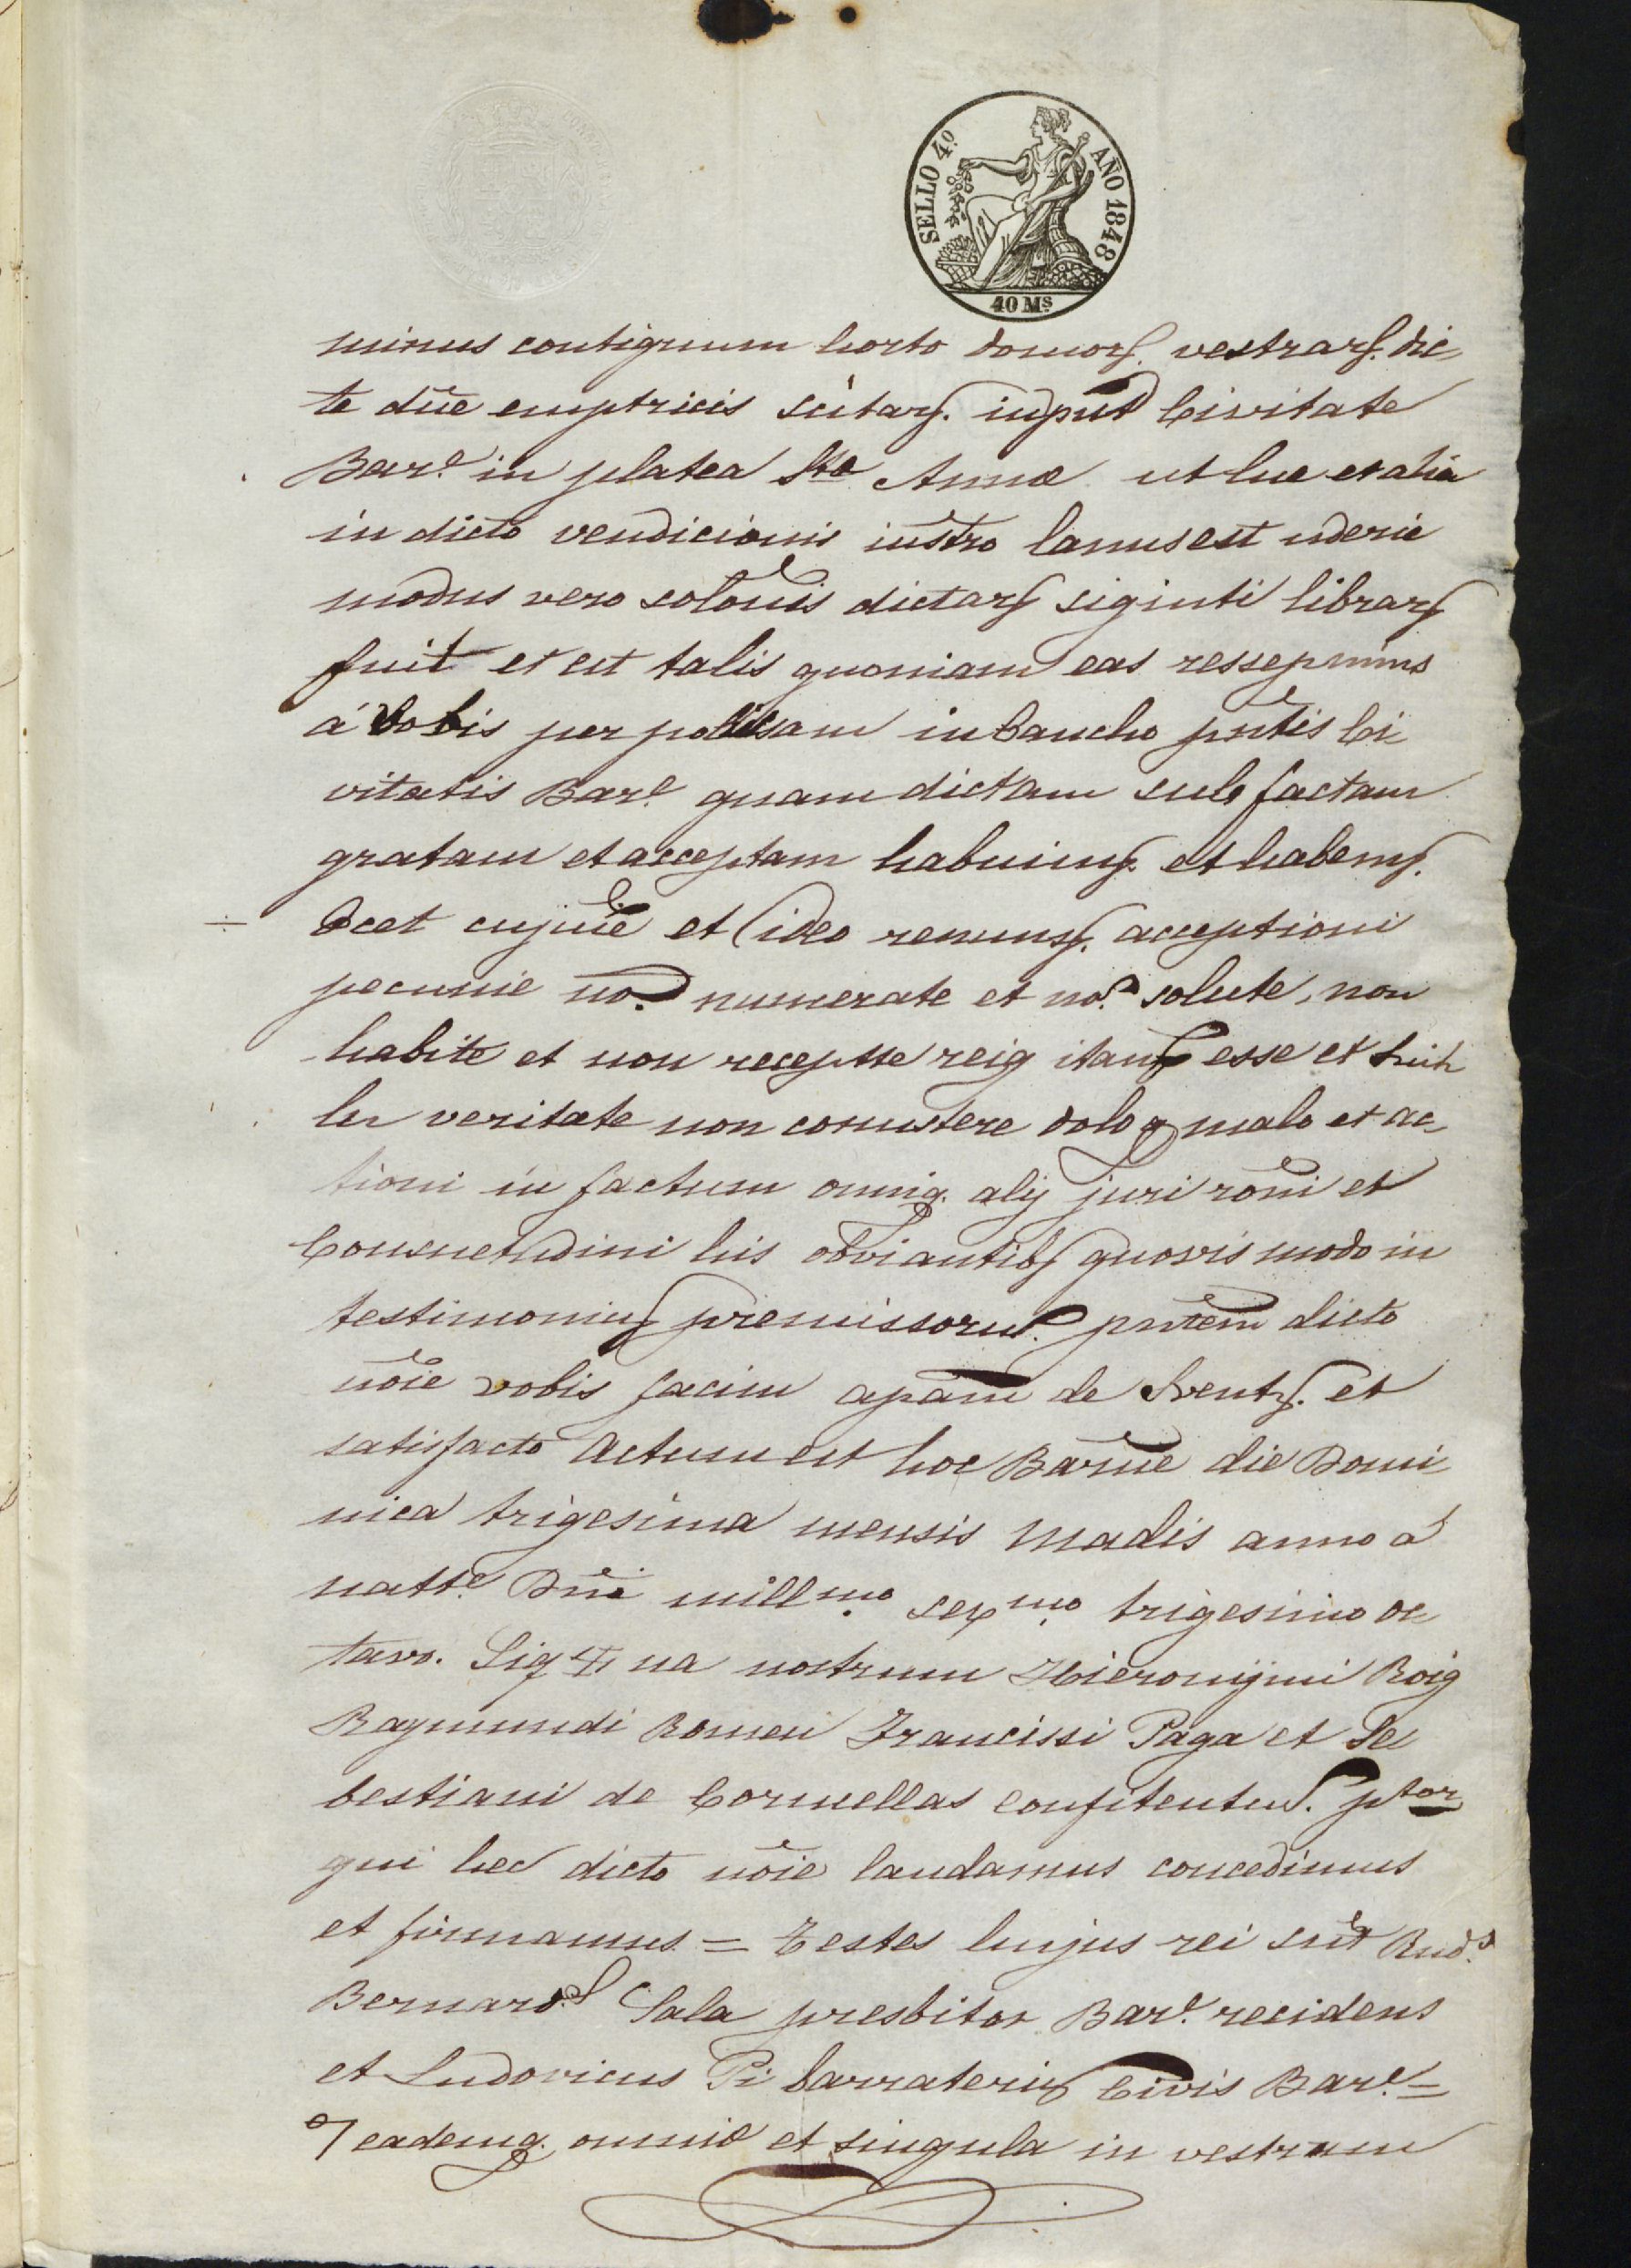 SELLO 4.º AÑO 1848
40 Ms
minus contiguum horto domorũ. vestrarũ. dic
te dñe emptricis scitarũ. inpñt Civitate
Bar.e in platea Ste Annæ ut hec et alia
in dicto vendicionis iñstro lanus est uderie
modus vero solõnis dictarũ siginti librarũ
fuit et est talis quoniam eas ressepimus
á Vobis per polissam in bancho pñtis Ci
vitatis Bar.e quam dictam sub factam
gratam et acceptam habuimus. et habemus.
et ideo renuns. acceptioni
pecunie no. numerate et no. solute, non
habite et non receptte reig itanq esse et
in veritate non consistere dologmalo et ac
tioni in factum omnig. alij juri rõni et
Consuetudini his obviantibs quovis modo in
testimonius premissoru. pñtem dicto
nõie vobis facim apam de et
satisfacto Actum est hoc Barñe die Domi
nica trigesima mensis Madis anno á
natt.e Dñi mill.mo sex.mo trigesimo oc
tavo. Sig ✠ na nostrum Hieronijmi Roig
Raymundi Romeu Francissi Paga et Se
bestiani de Cormellas confitentiu. ptor
qui hec dicto nõie laudamus concedimus
et firmamus = Testes hujus rei sũt Rnd.s
Bernard.s Sala presbiter Bar.e recidens
et Ludovicus Pi barraterius Civis Bar.e =
eademq. omnia et singula in vestram